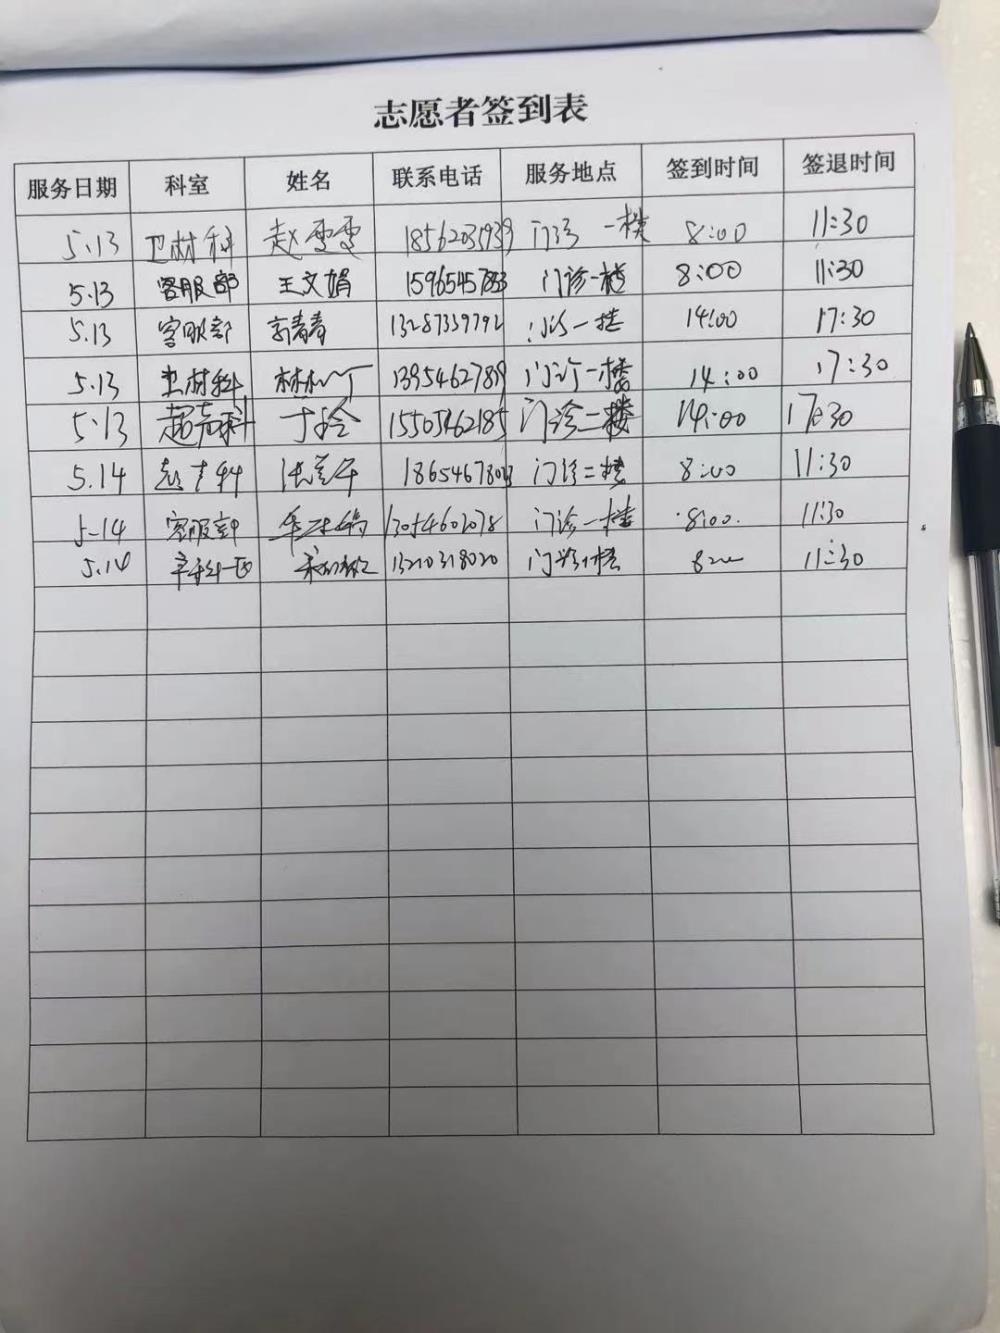 志愿者签到表
服务日期 科室 姓名 联系电话 服务地点 签到时间 签退时间
5.13 卫材科 赵雯雯 门诊一楼 8:00 11:30
5.13 客服部 王文娟 门诊一楼 8:00 11:30
5.13 客服部 郭青青 13287339792 门诊一楼 14:00 17:30
5.13 卫材科 门诊一楼 14:00 17:30
5.13 超声科 于玲 15505462185 门诊二楼 14:00 17:30
5.14 超声科 门诊二楼 8:00 11:30
5.14 客服部 13054602078 门诊一楼 8:00 11:30
5.14 13210318020 门诊 11:30